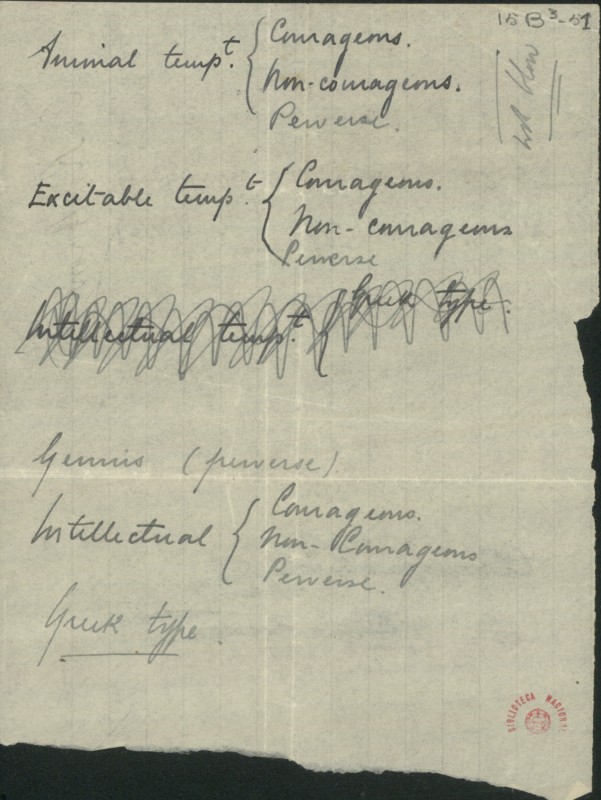 15 B³-51
Animal temp.t { Courageous.
Non-courageous.
Perverse.
Excitable temp.t { Courageous.
Non-courageous
Perverse
Intellectual temp.t { Greek type.
Genius (perverse).
Intellectual { Courageous.
Non-Courageous
Perverse.
Greek type.
BIBLIOTECA NACIONAL